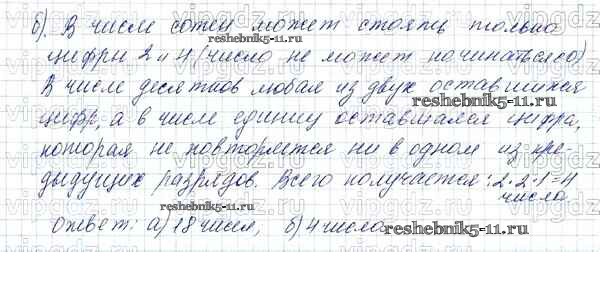 б). В числе сотен может стоять только
цифры 2 и 4 (число не может начинаться с 0)
В числе десятков любая из двух оставшихся
цифр, а в числе единиц оставшаяся цифра,
которая не повторяется ни в одном из пре-
дыдущих разрядов. Всего получается: 2·2·1=4
числа
Ответ: а) 18 чисел, б) 4 числа
reshebnik5-11.ru
reshebnik5-11.ru
reshebnik5-11.ru
reshebnik5-11.ru
reshebnik5-11.ru
vipgdz